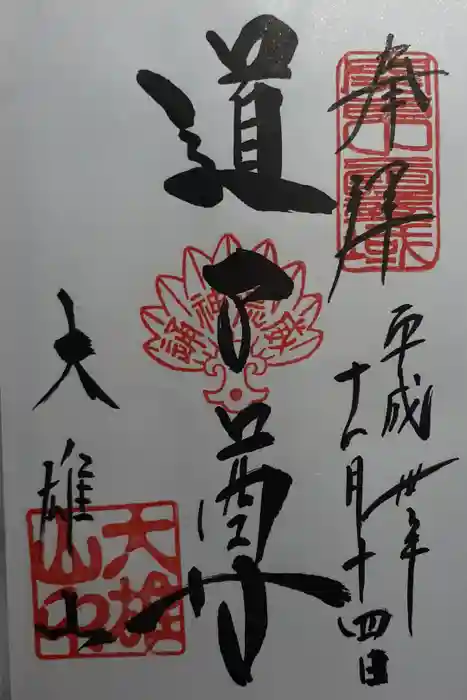 奉拝
平成卅年
十一月十四日
道了尊
大雄山
大雄
山印